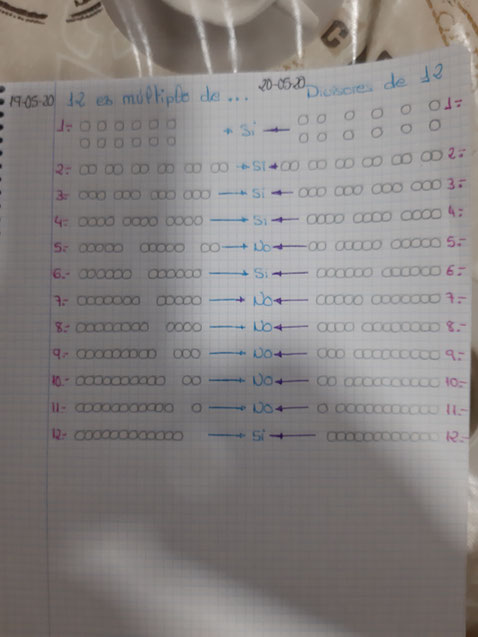 19-05-20 12 es múltiplo de... 20-05-20 Divisores de 12
1:- Si 1:-
2:- Si 2:-
3:- Si 3:-
4:- Si 4:-
5:- No 5:-
6.- Si 6:-
7:- No 7:-
8:- No 8:-
9:- No 9:-
10:- No 10:-
11:- No 11:-
12:- Si 12:-